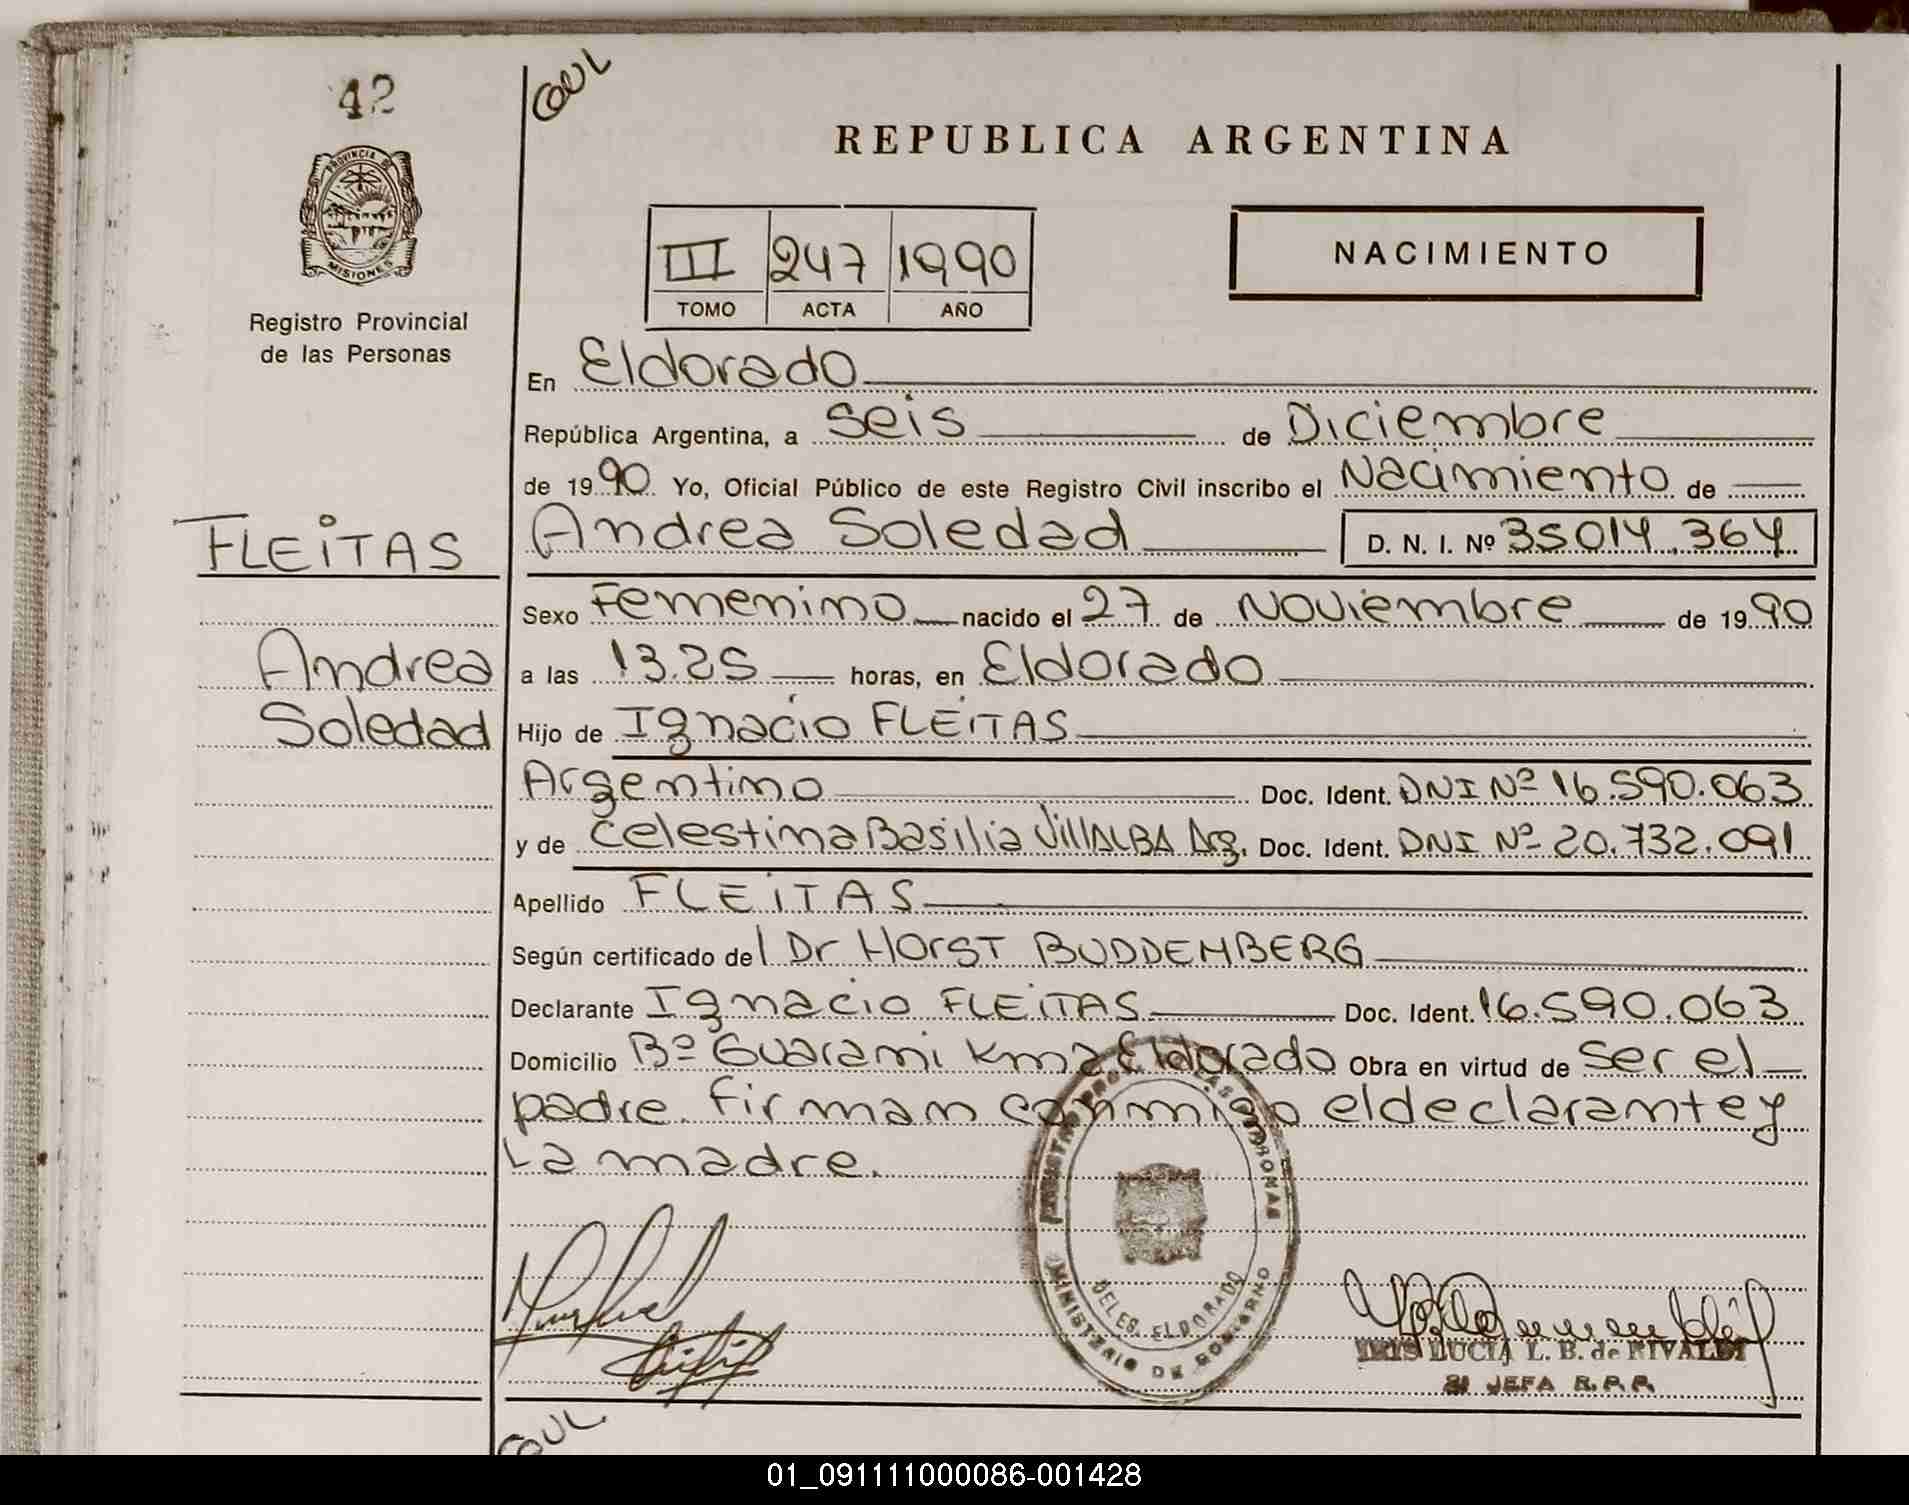 42
COUL
PROVINCIA DE
MISIONES
Registro Provincial
de las Personas
REPUBLICA ARGENTINA
III 247 1990
TOMO ACTA AÑO
NACIMIENTO
En Eldorado
República Argentina, a seis de Diciembre
de 1990 Yo, Oficial Público de este Registro Civil inscribo el Nacimiento de
FLEITAS Andrea Soledad D. N. I. Nº 35014.364
Sexo Femenino nacido el 27 de Noviembre de 1990
Andrea a las 13.25 horas, en Eldorado
Soledad Hijo de Ignacio FLEITAS
Argentino Doc. Ident. DNI Nº 16.590.063
y de Celestina Basilia VillALBA Arg. Doc. Ident. DNI Nº 20.732.091
Apellido FLEITAS
Según certificado del Dr HOrST BUDDEMBERG
Declarante Ignacio FLEITAS Doc. Ident. 16.590.063
Domicilio Bº Guarani Km2 Eldorado Obra en virtud de ser el
padre. Firman conmigo el declarante y
La madre.
MINISTERIO DE GOBIERNO
DELEG. ELDORADO
IRIS LUCIA L. B. de RIVALDI
JEFA R.P.P.
COUL
01_091111000086-001428